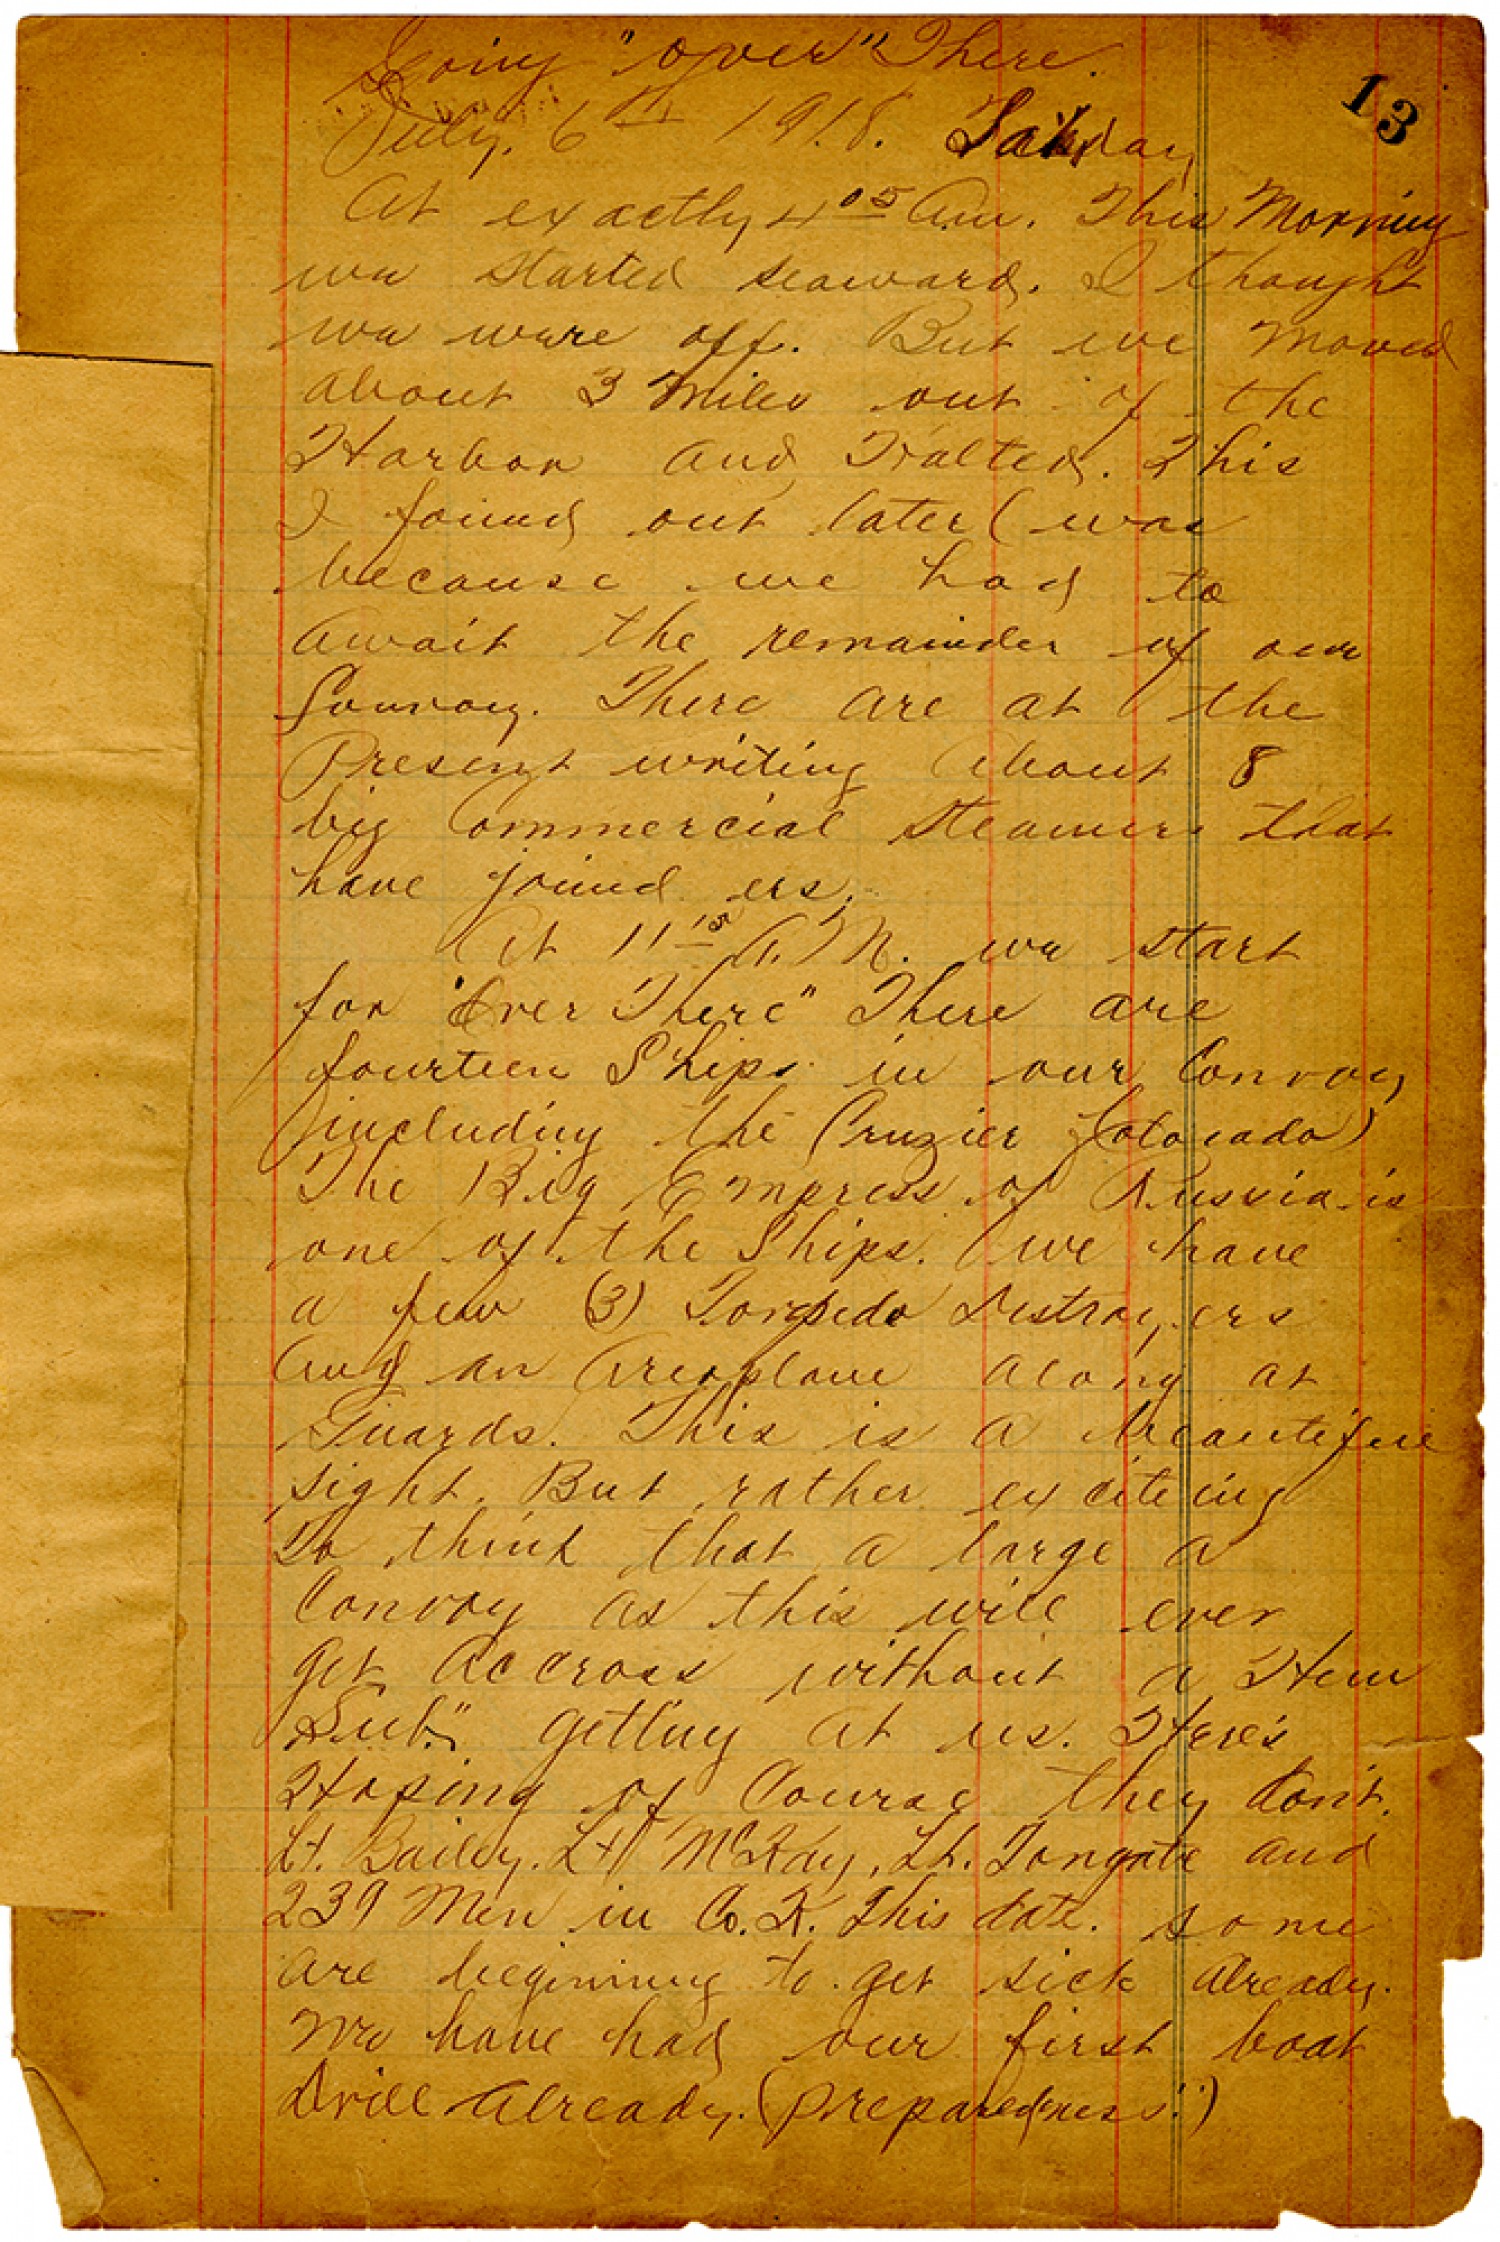 Going "over" There.
13
July. 6th 1918. Saturday
At exactly 4 05 A.m. This Morning
we started seaward. I thought
we were off. But we moved
about 3 miles out of the
Harbor and Halted. This
I found out later (was
because we had to
await the remainder of our
Convoy. There are at the
Present writing about 8
big Commercial steamers that
have joined us.
At 11 A.M. we start
for "Over There" There are
fourteen Ships in our Convoy
(including the Cruzier Colorado)
The Big Empress of Russia is
one of the Ships. we have
a few (3) Torpedo Destroyers
and an Areoplane along at
Guards. This is a beautiful
sight. But rather exciteing
To think that a large a
Convoy as this will ever
get accross without a Hun
"Sub." getting at us. Here's
Hoping of Course they don't.
Lt. Bailey. Lt McKay, Lt. Tongate and
239 Men in Co. K. This date. some
are beginning to get sick already.
We have had our first boat
Drill Already. (Preparedness".)